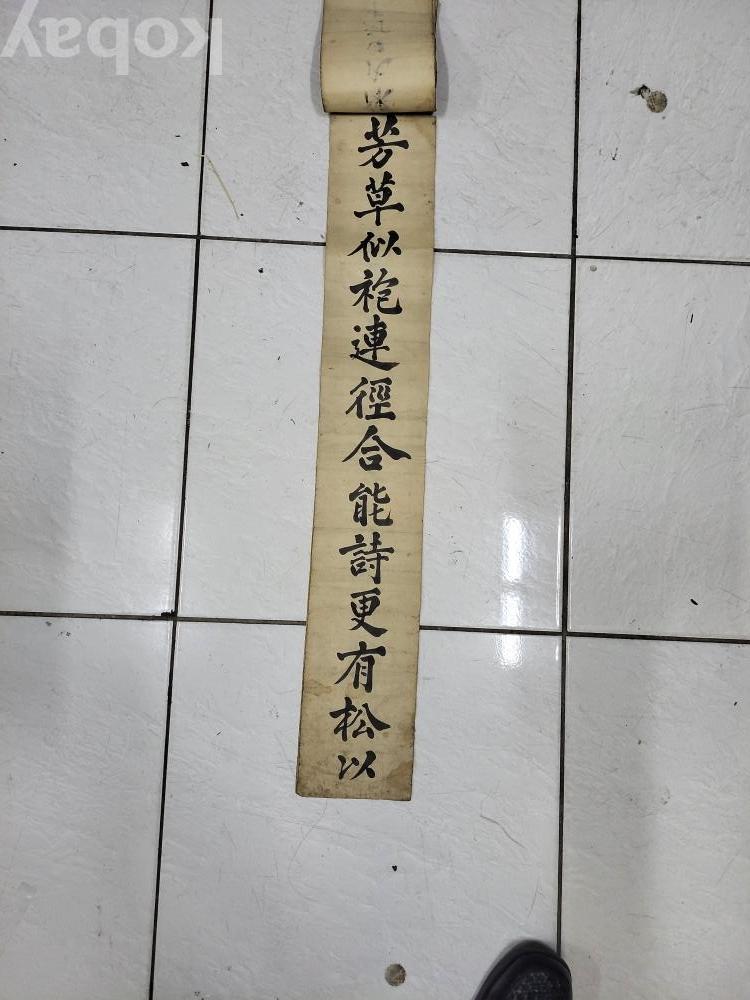 kobay
芳草似袍連徑合能詩更有松以